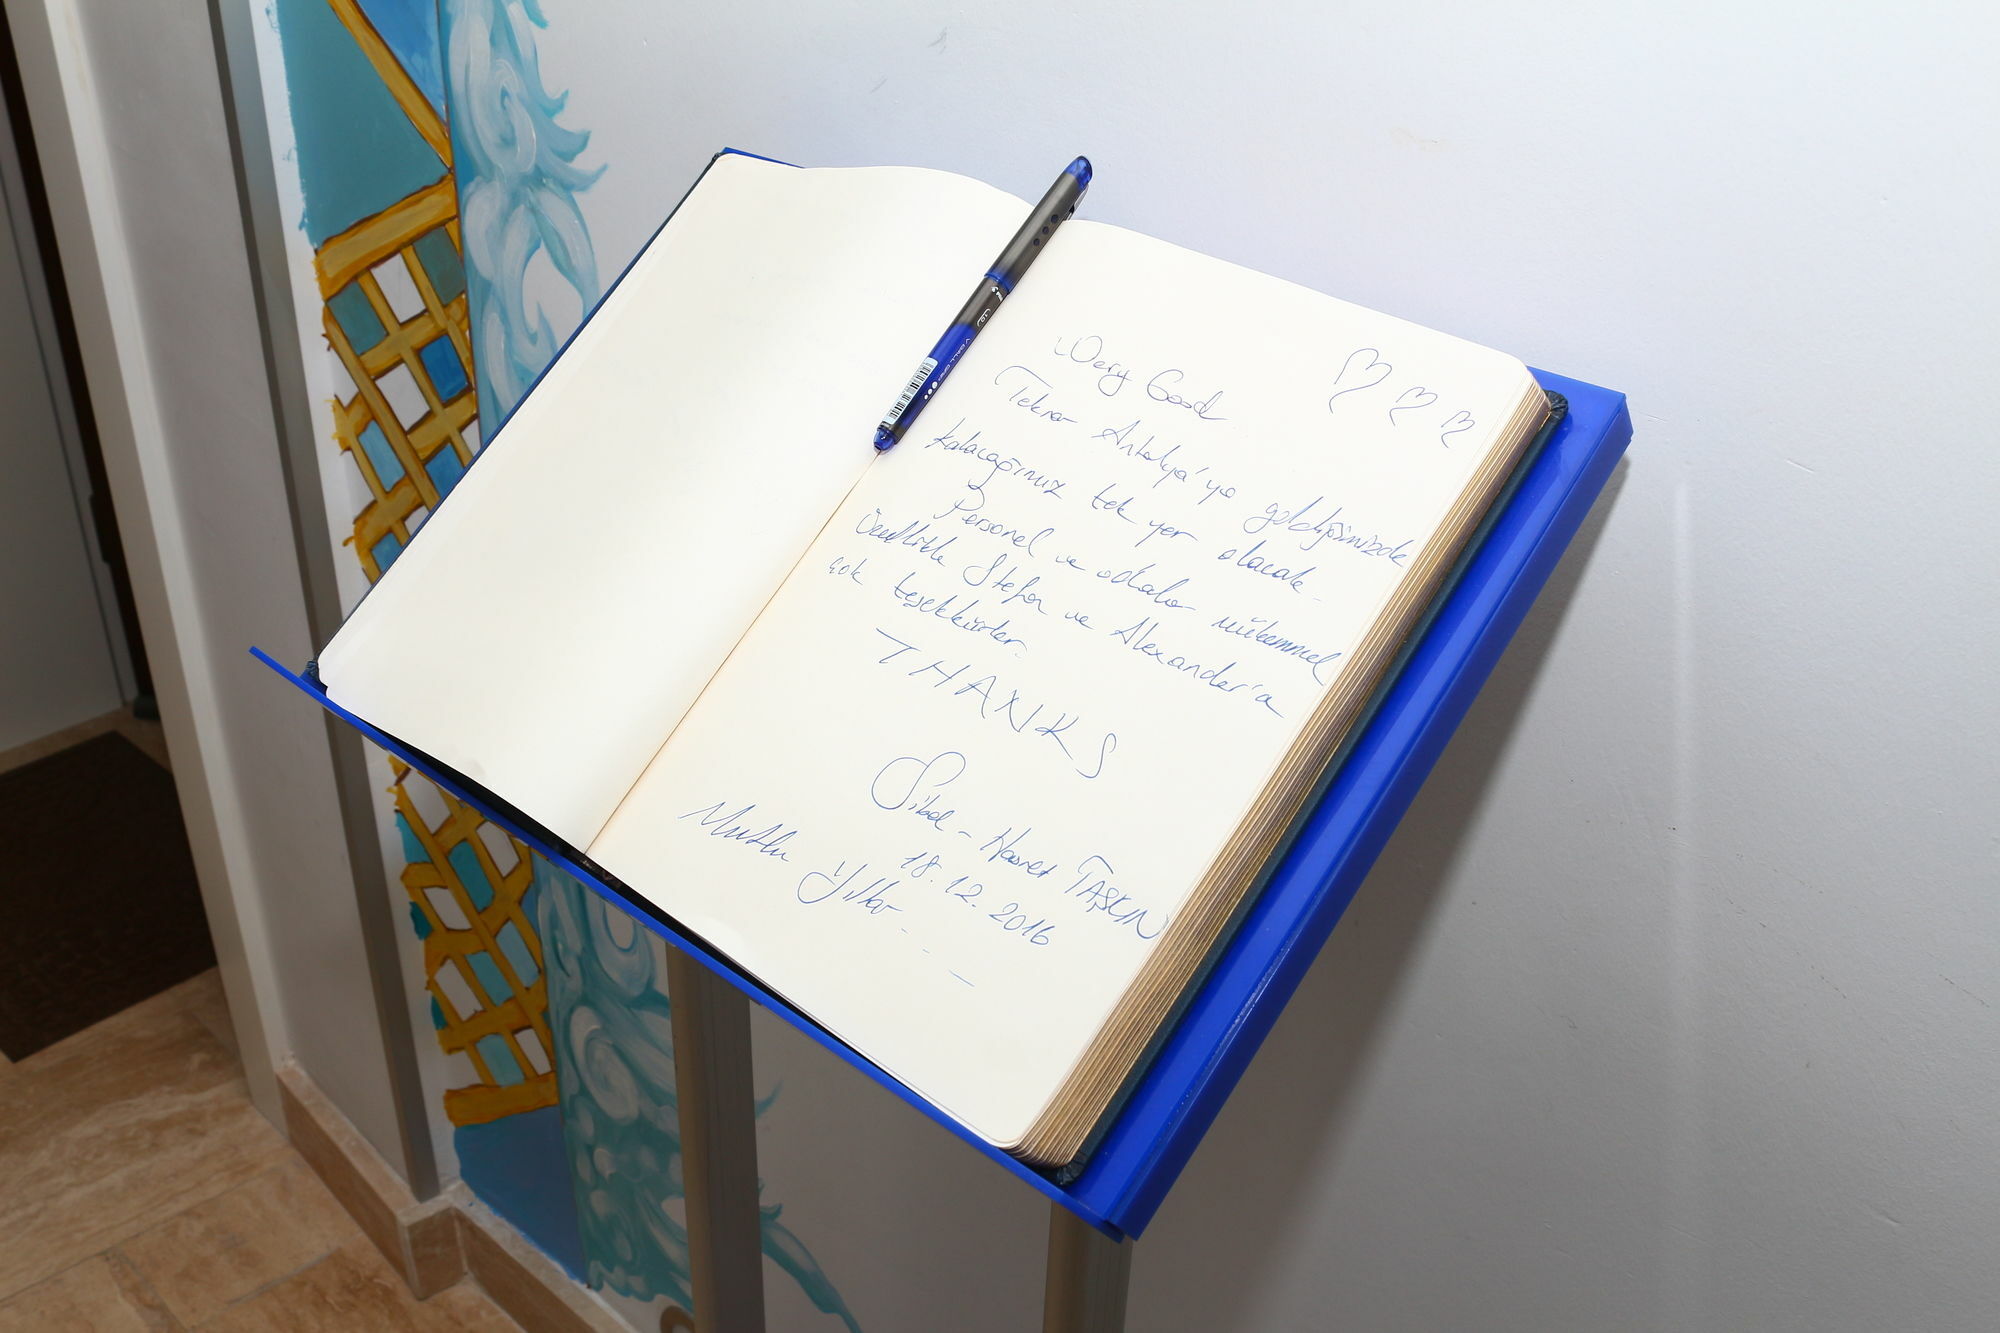 Wery Good
Tekrar Antalya'ya geldiğimizde
kalacağımız tek yer olacak.
Personel ve odalar mükemmel
özellikle Stefan ve Alexander'a
çok teşekkürler.
THANKS
Sibel - Hasret TAŞKIN
18.12.2016
Mutlu Yıllar...
V BALL GRIP